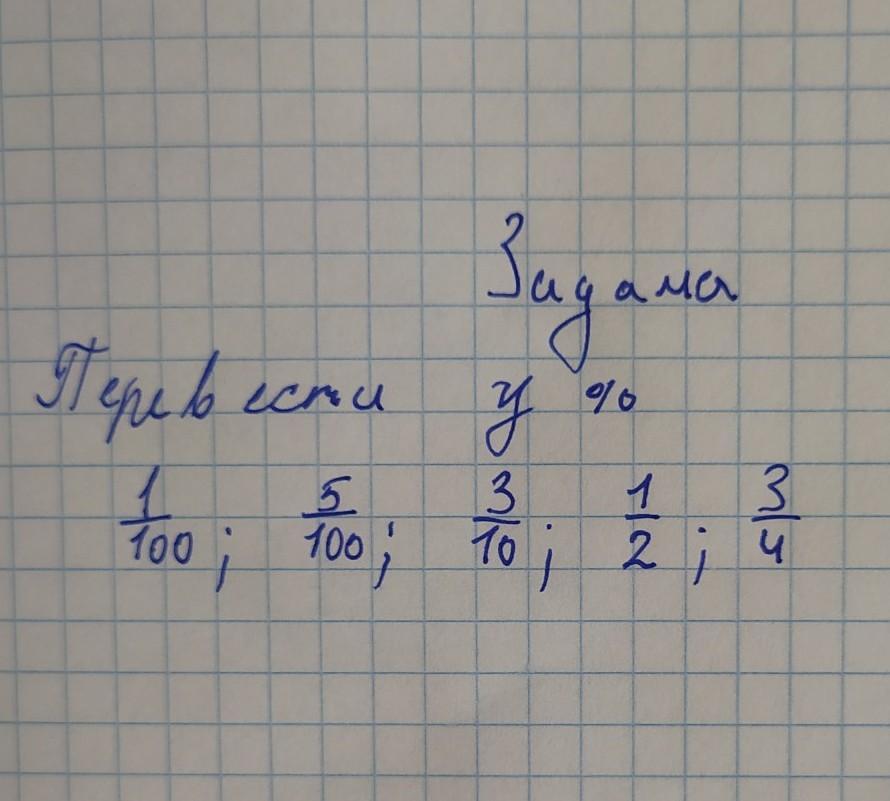 Задача
Перевести у %
1/100; 5/100; 3/10; 1/2; 3/4